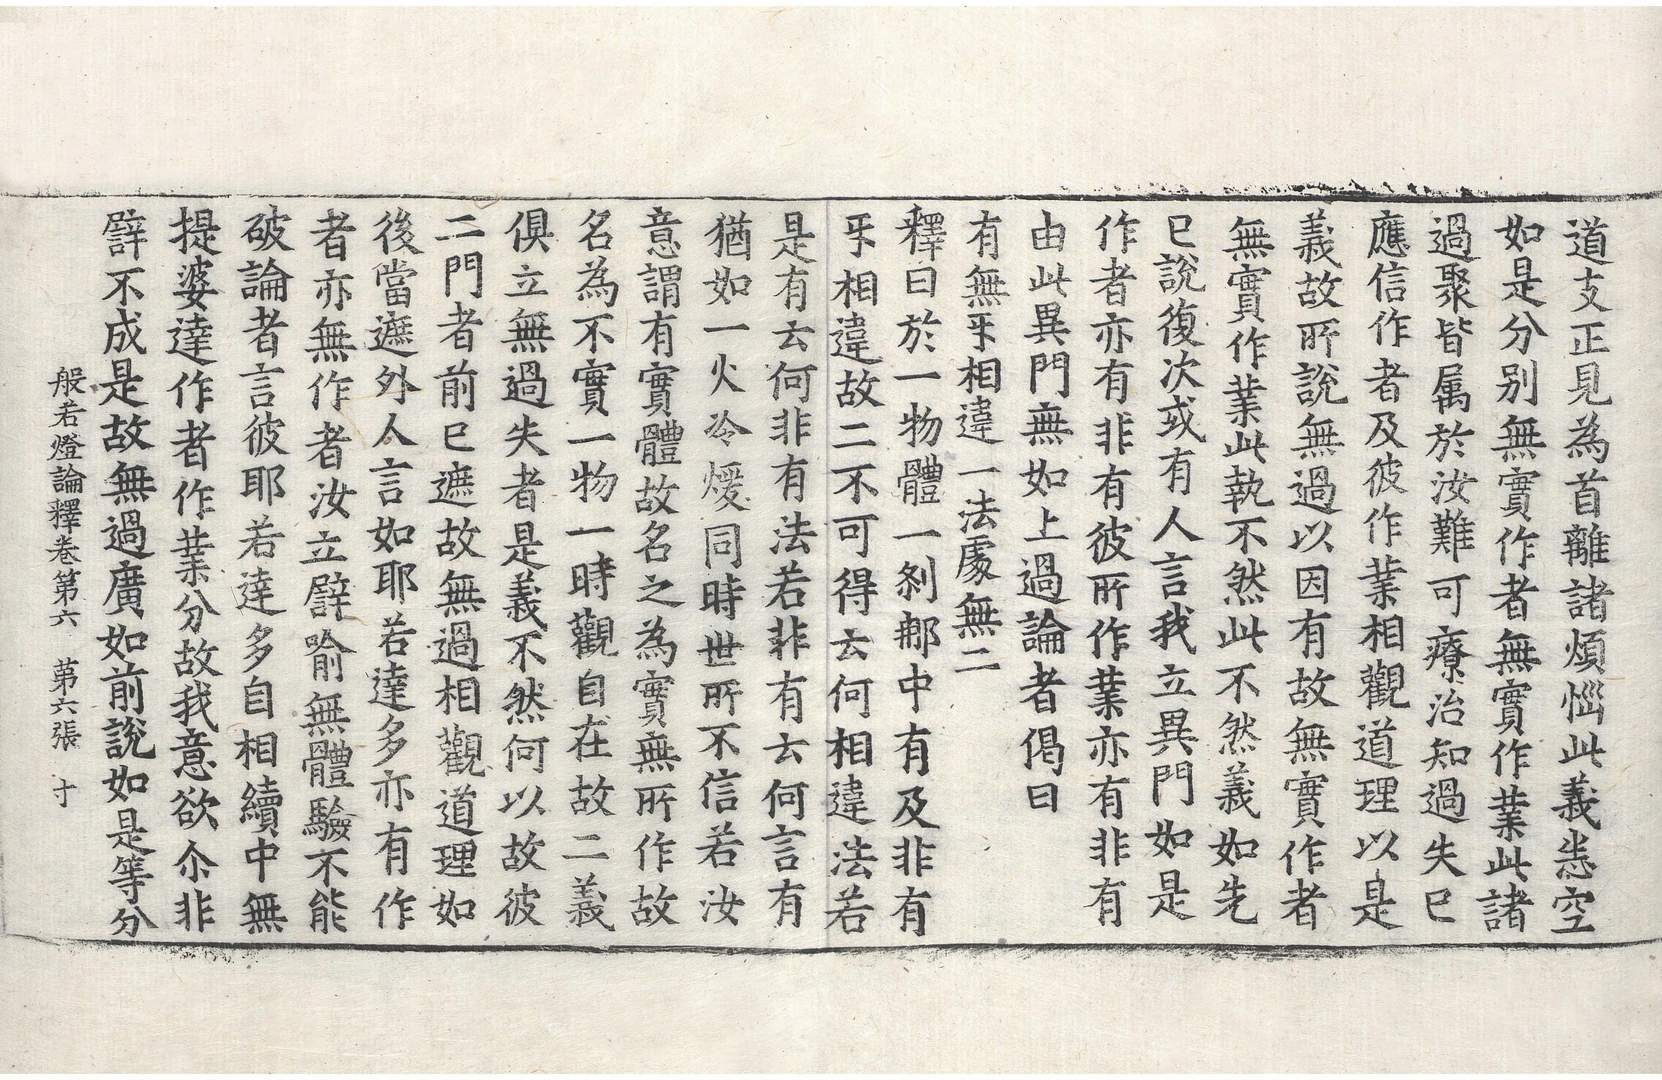 道支正見為首離諸煩惱此義悉空
如是分別無實作者無實作業此諸
過聚皆属於汝難可療治知過失已
應信作者及彼作業相觀道理以是
義故所說無過以因有故無實作者
無實作業此執不然此不然義如先
已說復次或有人言我立異門如是
作者亦有非有彼所作業亦有非有
由此異門無如上過論者偈曰
有無㸦相違一法處無二
釋曰於一物體一刹那中有及非有
㸦相違故二不可得云何相違法若
是有云何非有法若非有云何言有
猶如一火冷煖同時世所不信若汝
意謂有實體故名之為實無所作故
名為不實一物一時觀自在故二義
俱立無過失者是義不然何以故彼
二門者前已遮故無過相觀道理如
後當遮外人言如耶若達多亦有作
者亦無作者汝立譬喻無體驗不能
破論者言彼耶若達多自相續中無
提婆達作者作業分故我意欲尒非
譬不成是故無過廣如前說如是等分
般若燈論釋卷第六　第六張　寸